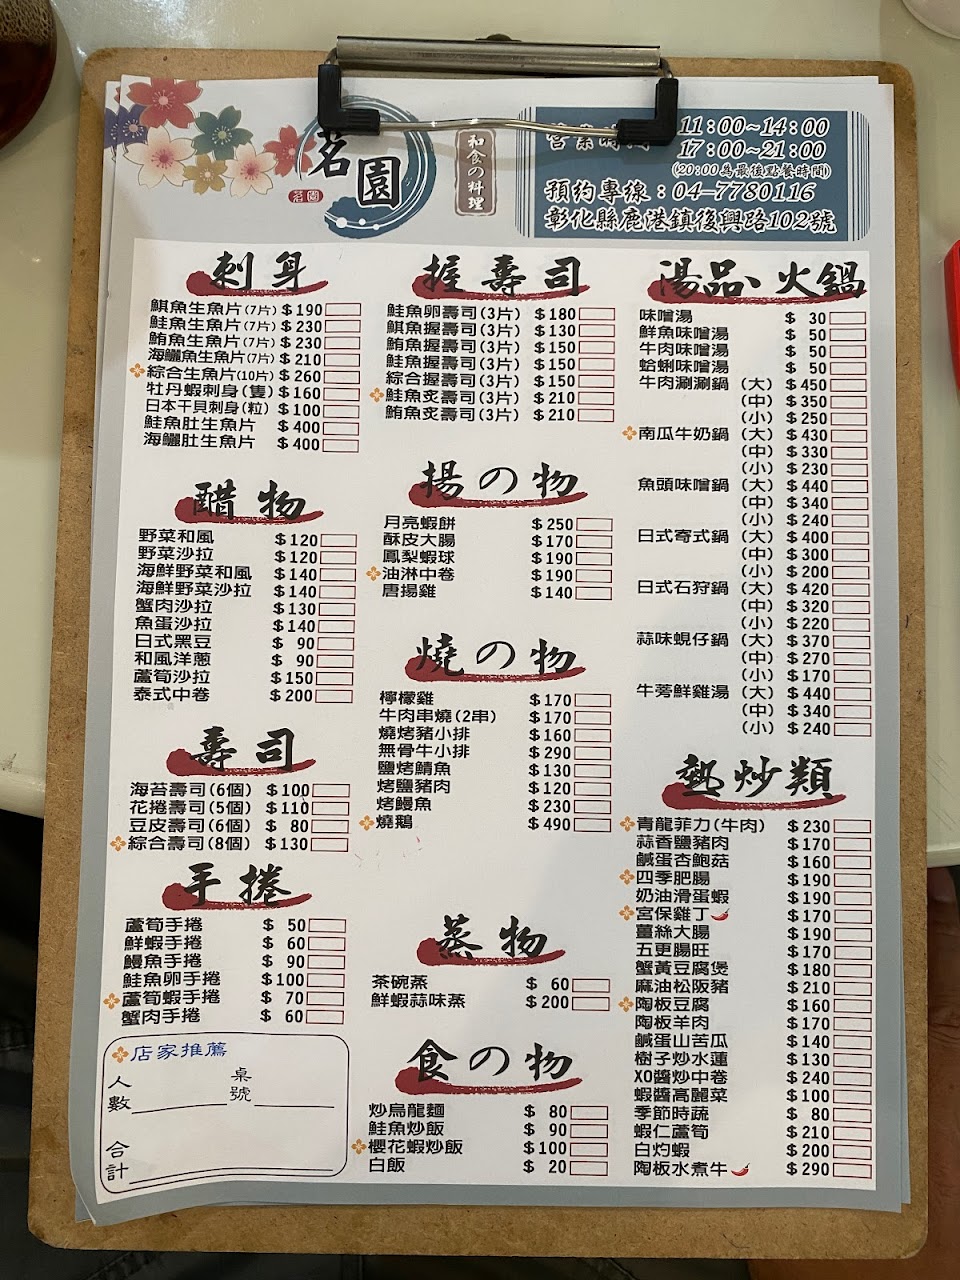 茗園
茗園
和食の料理
11:00~14:00
17:00~21:00
(20:00為最後點餐時間)
預約專線：04-7780116
彰化縣鹿港鎮復興路102號
刺身
鯕魚生魚片(7片) $190
鮭魚生魚片(7片) $230
鮪魚生魚片(7片) $230
海鱺魚生魚片(7片) $210
綜合生魚片(10片) $260
牡丹蝦刺身(隻) $160
日本干貝刺身(粒) $100
鮭魚肚生魚片 $400
海鱺肚生魚片 $400
醋物
野菜和風 $120
野菜沙拉 $120
海鮮野菜和風 $140
海鮮野菜沙拉 $140
蟹肉沙拉 $130
魚蛋沙拉 $140
日式黑豆 $90
和風洋蔥 $90
蘆筍沙拉 $150
泰式中卷 $200
壽司
海苔壽司(6個) $100
花捲壽司(5個) $110
豆皮壽司(6個) $80
綜合壽司(8個) $130
手捲
蘆筍手捲 $50
鮮蝦手捲 $60
鰻魚手捲 $90
鮭魚卵手捲 $100
蘆筍蝦手捲 $70
蟹肉手捲 $60
店家推薦
人數 桌號
合計
握壽司
鮭魚卵壽司(3片) $180
鯕魚握壽司(3片) $130
鮪魚握壽司(3片) $150
鮭魚握壽司(3片) $150
綜合握壽司(3片) $150
鮭魚炙壽司(3片) $210
鮪魚炙壽司(3片) $210
揚の物
月亮蝦餅 $250
酥皮大腸 $170
鳳梨蝦球 $190
油淋中卷 $190
唐揚雞 $140
燒の物
檸檬雞 $170
牛肉串燒(2串) $170
燒烤豬小排 $160
無骨牛小排 $290
鹽烤鯖魚 $130
烤鹽豬肉 $120
烤鰻魚 $230
燒鵝 $490
蒸物
茶碗蒸 $60
鮮蝦蒜味蒸 $200
食の物
炒烏龍麵 $80
鮭魚炒飯 $90
櫻花蝦炒飯 $100
白飯 $20
湯品、火鍋
味噌湯 $30
鮮魚味噌湯 $50
牛肉味噌湯 $50
蛤蜊味噌湯 $50
牛肉涮涮鍋 (大) $450
(中) $350
(小) $250
南瓜牛奶鍋 (大) $430
(中) $330
(小) $230
魚頭味噌鍋 (大) $440
(中) $340
(小) $240
日式寄式鍋 (大) $400
(中) $300
(小) $200
日式石狩鍋 (大) $420
(中) $320
(小) $220
蒜味蜆仔鍋 (大) $370
(中) $270
(小) $170
牛蒡鮮雞湯 (大) $440
(中) $340
(小) $240
熱炒類
青龍菲力(牛肉) $230
蒜香鹽豬肉 $170
鹹蛋杏鮑菇 $160
四季肥腸 $190
奶油滑蛋蝦 $190
宮保雞丁 $170
薑絲大腸 $190
五更腸旺 $170
蟹黃豆腐煲 $180
麻油松阪豬 $210
陶板豆腐 $160
陶板羊肉 $170
鹹蛋山苦瓜 $140
樹子炒水蓮 $130
XO醬炒中卷 $240
蝦醬高麗菜 $100
季節時蔬 $80
蝦仁蘆筍 $210
白灼蝦 $200
陶板水煮牛 $290